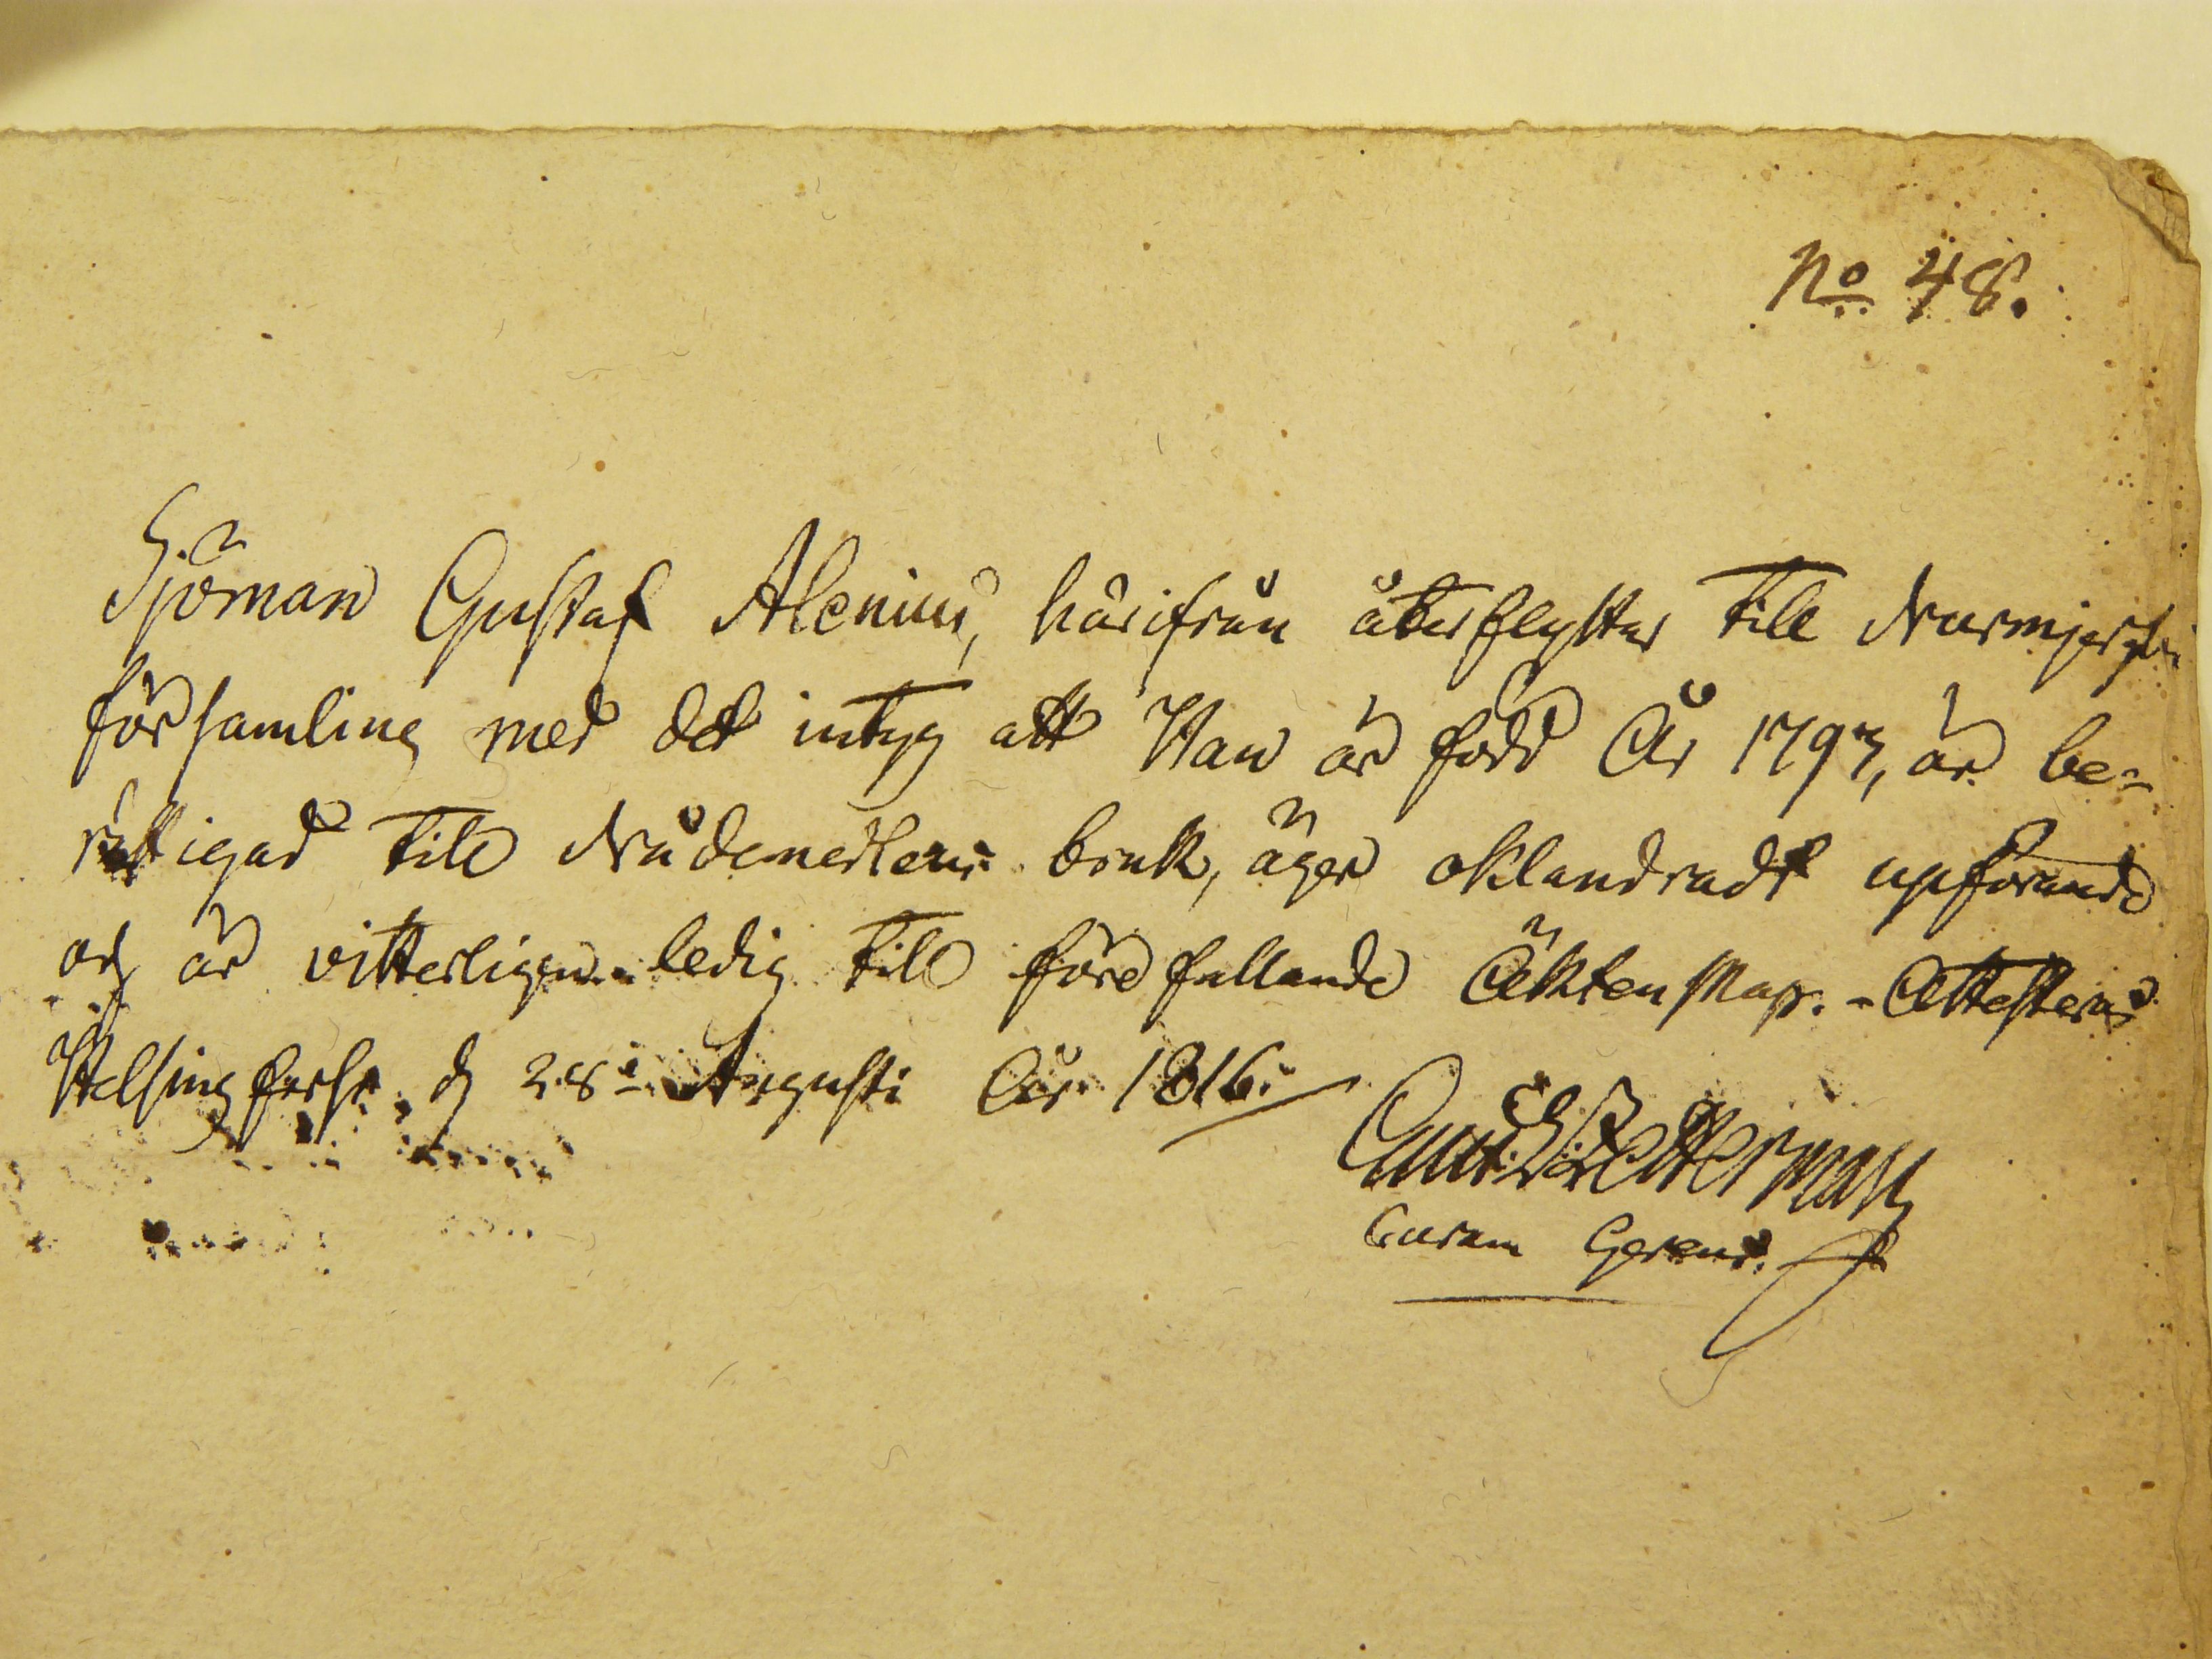 No 48.
Sjöman Gustaf Alenius, härifrån återflyttar till Nurmijerfvi
församling med det intyg att Han är född År 1793, är be-
rättigad till Nådemedlens bruk, äger oklandradt upförande
och är vitterligen ledig till förefallande Äktenskap. - Attesteras
Helsingfors d 28de Augusti År 1816.
Zetterman
Curam Gerens.